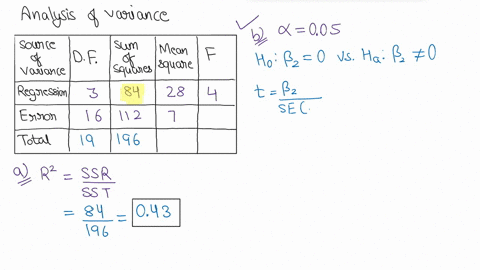 Analysis of variance
Source of Variance D.F. Sum of squares Mean square F
Regression 3 84 28 4
Error 16 112 7
Total 19 196
a) R² = SSR / SST
= 84 / 196 = 0.43
b) α = 0.05
H₀: β₂ = 0 vs. Hₐ: β₂ ≠ 0
t = β₂ / SE(